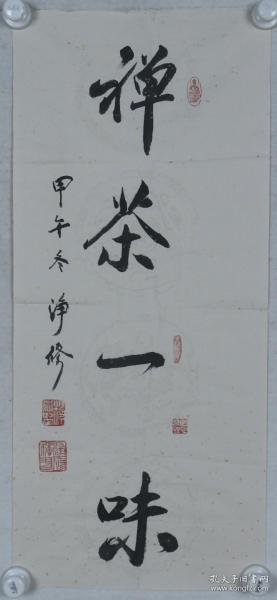 禅茶一味
甲午冬 净修
孔夫子旧书网